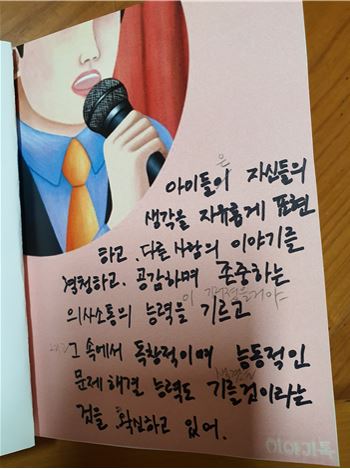 아이들이 자신들의
은
생각을 자유롭게 표현
하고. 다른 사람의 이야기를
경청하고. 공감하며 존중하는
의사소통의 능력을 기르고
그 속에서 독창적이며 능동적인
문제해결 능력도 기를것이라는
것을 확신하고 있어.
이야기톡